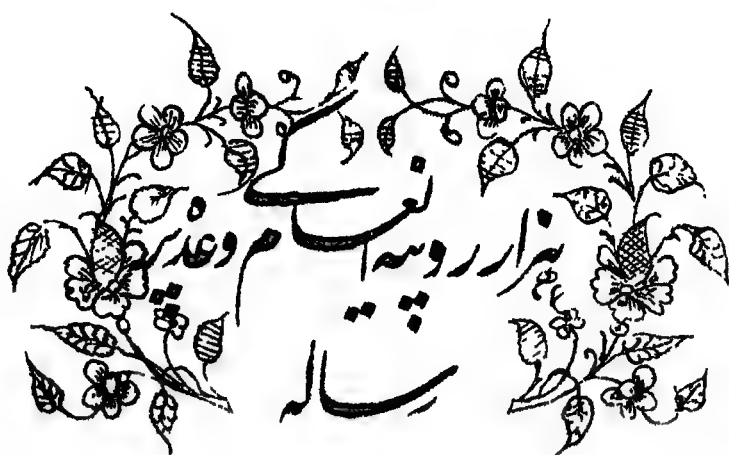 ہزار روپیہ انعام کے وعدہ پر
رسالہ